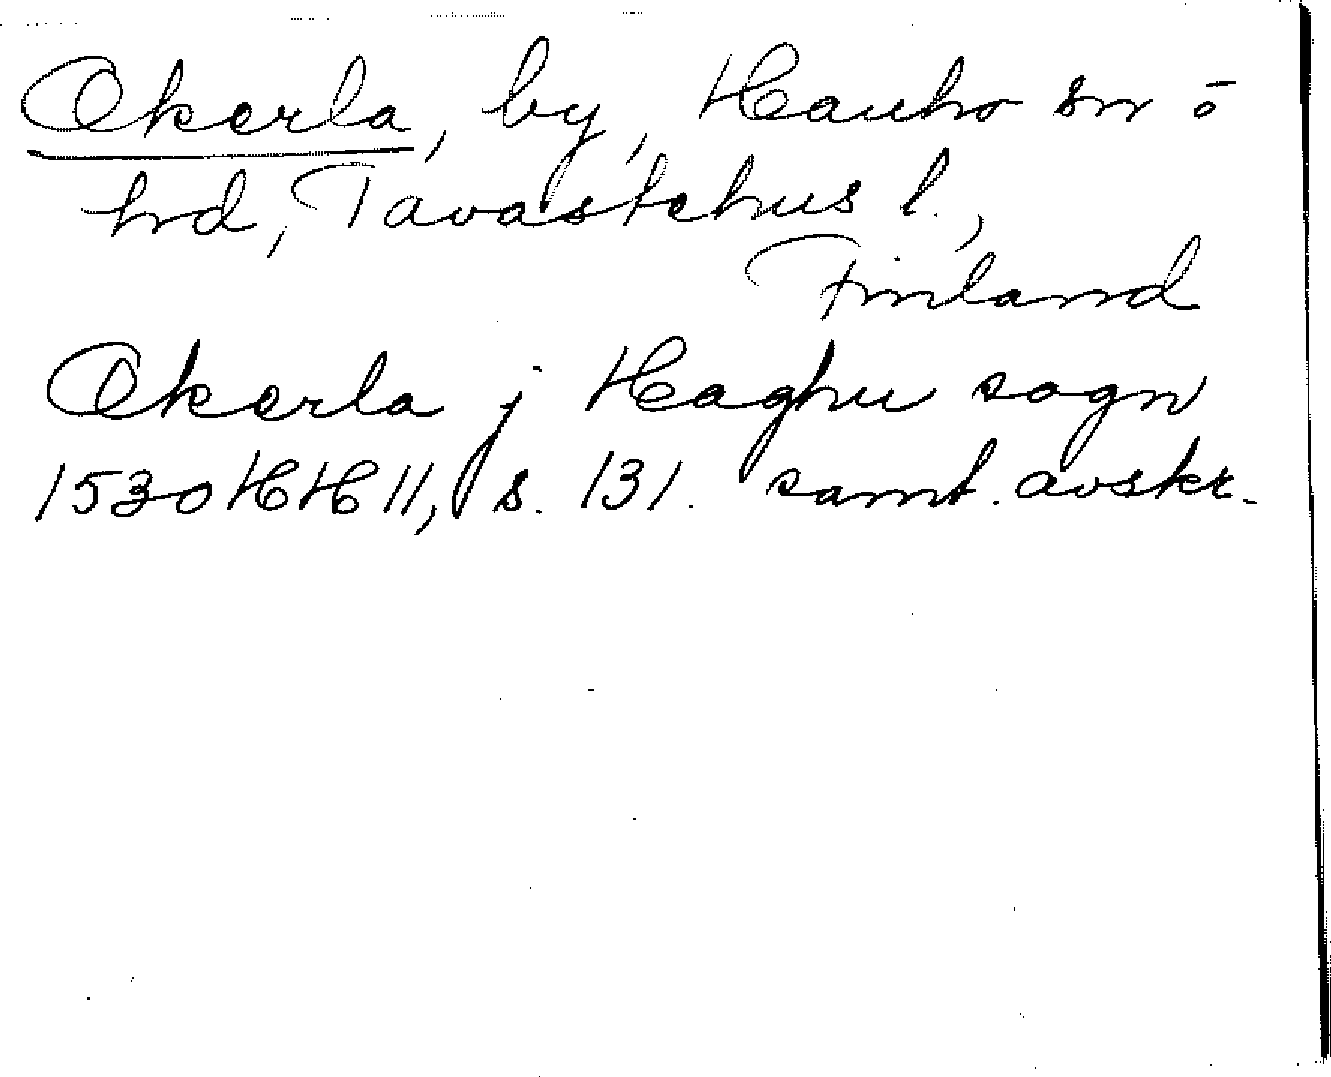 Okerla, by, Hauho sn o
hd, Tavastehus l.,
Finland
Okerla j Haghu sogn
1530 HH II, s. 131. samt. avskr.